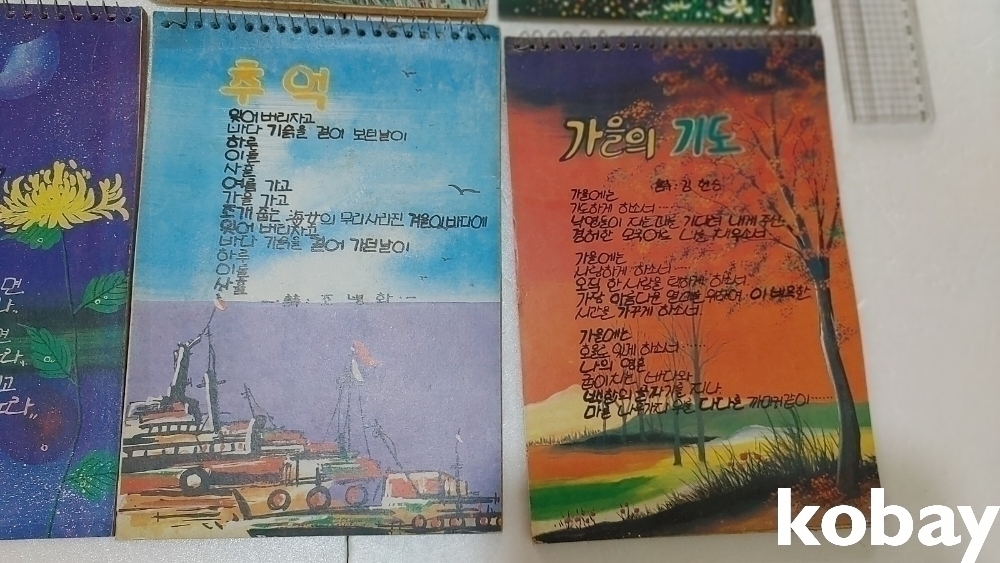 면
나.
면
라..
고
노라,,
추억
잊어버리자고
바다 기슭을 걸어 보던날이
하루
이틀
사흘
여름 가고
가을 가고
조개 줍는 海女의 무리 사라진 겨울 이 바다에
잊어 버리자고
바다 기슭을 걸어 가던날이
하루
이틀
사흘
詩: 조병화
가을의 기도
詩: 김현승
가을에는
기도하게 하소서......
낙엽들이 지는때를 기다려 내게 주신
겸허한 모국어로 나를 채우소서.
가을에는
사랑하게 하소서....
오직 한 사람을 택하게 하소서.
가장 아름다운 열매를 위하여 이 비옥한
시간을 가꾸게 하소서.
가을에는
호올로 있게 하소서......
나의 영혼
굽이치는 바다와
백합의 골짜기를 지나.
마른 나뭇가지 위에 다다른 까마귀같이......
kobay